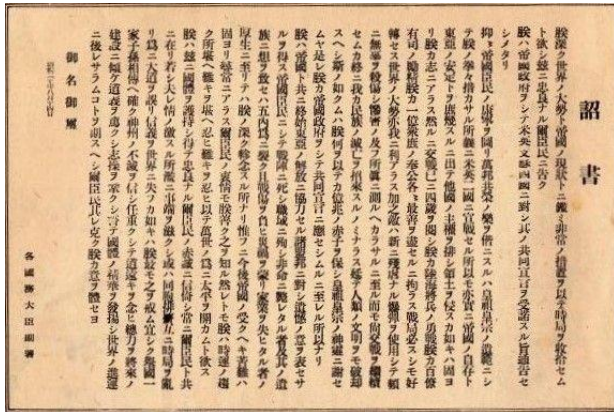 詔書
朕深ク世界ノ大勢ト帝國ノ現狀トニ鑑ミ非常ノ措置ヲ以テ時局ヲ收拾セム
ト欲シ茲ニ忠良ナル爾臣民ニ告ク
朕ハ帝國政府ヲシテ米英支蘇四國ニ對シ其ノ共同宣言ヲ受諾スル旨通告セ
シメタリ
抑〻帝國臣民ノ康寧ヲ圖リ萬邦共榮ノ樂ヲ偕ニスルハ皇祖皇宗ノ遺範ニシ
テ朕ノ拳々措カサル所曩ニ米英二國ニ宣戰セル所以モ亦實ニ帝國ノ自存ト
東亞ノ安定トヲ庶幾スルニ出テ他國ノ主權ヲ排シ領土ヲ侵スカ如キハ固ヨ
リ朕カ志ニアラス然ルニ交戰已ニ四歳ヲ閲シ朕カ陸海將兵ノ勇戰朕カ百僚
有司ノ勵精朕カ一億衆庶ノ奉公各〻最善ヲ盡セルニ拘ラス戰局必スシモ好
轉セス世界ノ大勢亦我ニ利アラス加之敵ハ新ニ殘虐ナル爆彈ヲ使用シテ頻
ニ無辜ヲ殺傷シ慘害ノ及フ所眞ニ測ルヘカラサルニ至ル而モ尚交戰ヲ繼續
セムカ終ニ我カ民族ノ滅亡ヲ招來スルノミナラス延テ人類ノ文明ヲモ破却
スヘシ斯ノ如クムハ朕何ヲ以テカ億兆ノ赤子ヲ保シ皇祖皇宗ノ神靈ニ謝セ
ムヤ是レ朕カ帝國政府ヲシテ共同宣言ニ應セシムルニ至レル所以ナリ
朕ハ帝國ト共ニ終始東亞ノ解放ニ協力セル諸盟邦ニ對シ遺憾ノ意ヲ表セサ
ルヲ得ス帝國臣民ニシテ戰陣ニ死シ職域ニ殉シ非命ニ斃レタル者及其ノ遺
族ニ想ヲ致セハ五内爲ニ裂ク且戰傷ヲ負ヒ災禍ヲ蒙リ家業ヲ失ヒタル者ノ
厚生ニ至リテハ朕ノ深ク軫念スル所ナリ惟フニ今後帝國ノ受クヘキ苦難ハ
固ヨリ尋常ニアラス爾臣民ノ衷情モ朕善ク之ヲ知ル然レトモ朕ハ時運ノ趨
ク所堪ヘ難キヲ堪ヘ忍ヒ難キヲ忍ヒ以テ萬世ノ爲ニ太平ヲ開カムト欲ス
朕ハ茲ニ國體ヲ護持シ得テ忠良ナル爾臣民ノ赤誠ニ信倚シ常ニ爾臣民ト共
ニ在リ若シ夫レ情ノ激スル所濫ニ事端ヲ滋クシ或ハ同胞排擠互ニ時局ヲ亂
リ爲ニ大道ヲ誤リ信義ヲ世界ニ失フカ如キハ朕最モ之ヲ戒ム宜シク擧國一
家子孫相傳ヘ確ク神州ノ不滅ヲ信シ任重クシテ道遠キヲ念ヒ總力ヲ將來ノ
建設ニ傾ケ道義ヲ篤クシ志操ヲ鞏クシ誓テ國體ノ精華ヲ發揚シ世界ノ進運
ニ後レサラムコトヲ期スヘシ爾臣民其レ克ク朕カ意ヲ體セヨ
御名御璽
昭和二十年八月十四日
各國務大臣副署